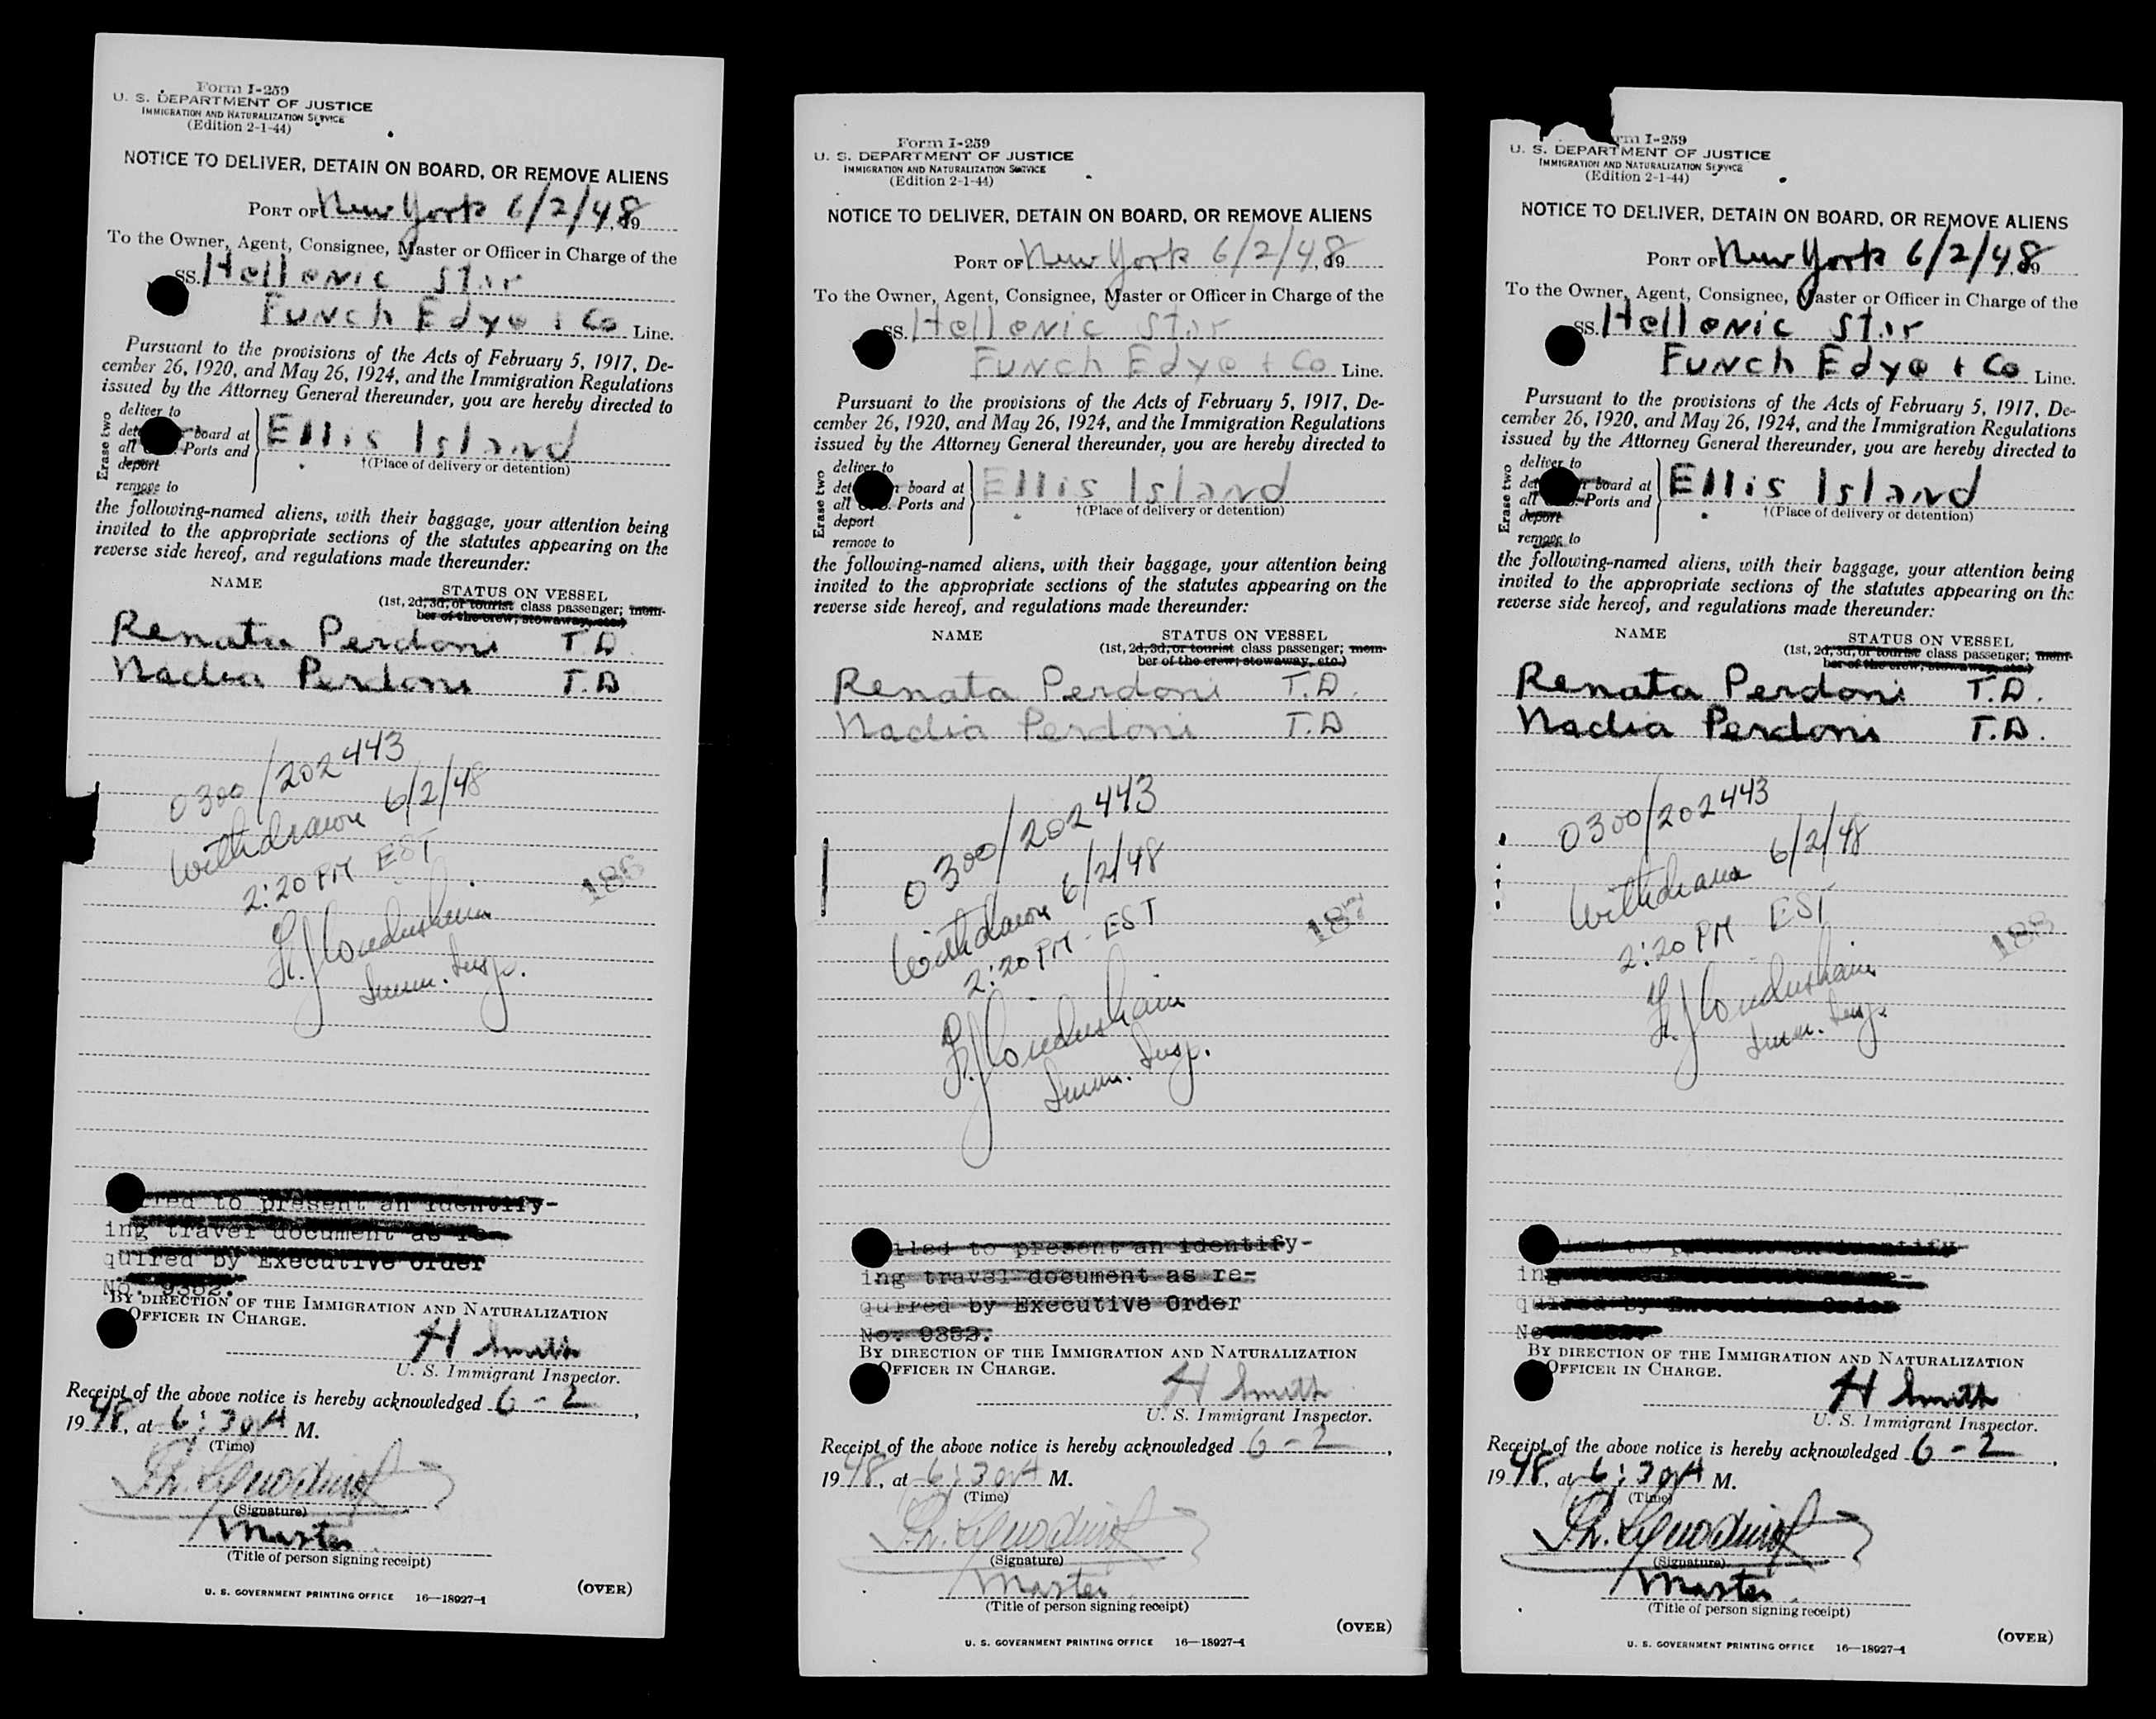 Form I-259
U. S. DEPARTMENT OF JUSTICE
IMMIGRATION AND NATURALIZATION SERVICE
(Edition 2-1-44)
NOTICE TO DELIVER, DETAIN ON BOARD, OR REMOVE ALIENS
PORT OF New York 6/2/48, 19
To the Owner, Agent, Consignee, Master or Officer in Charge of the
SS. Hellenic Star
Funch Edye + Co Line.
Pursuant to the provisions of the Acts of February 5, 1917, De-
cember 26, 1920, and May 26, 1924, and the Immigration Regulations
issued by the Attorney General thereunder, you are hereby directed to
Erase two
deliver to
board at
all Ports and
deport
remove to
Ellis Island
†(Place of delivery or detention)
the following-named aliens, with their baggage, your attention being
invited to the appropriate sections of the statutes appearing on the
reverse side hereof, and regulations made thereunder:
NAME STATUS ON VESSEL
(1st, 2d, 3d, or tourist class passenger; mem-
ber of the crew; stowaway, etc.)
Renata Perdoni T.D.
Nadia Perdoni T.D
0300/202443
Withdrawn 6/2/48
2:20 PM EST
Imm. Insp.
186
to present an identify-
ing travel document as re-
quired by Executive Order
No. 9352.
BY DIRECTION OF THE IMMIGRATION AND NATURALIZATION
OFFICER IN CHARGE.
H Smith
U. S. Immigrant Inspector.
Receipt of the above notice is hereby acknowledged 6-2,
1948, at 6:30 A M.
(Time)
(Signature)
Master
(Title of person signing receipt)
U. S. GOVERNMENT PRINTING OFFICE 16—18927-1
(OVER)
Form I-259
U. S. DEPARTMENT OF JUSTICE
IMMIGRATION AND NATURALIZATION SERVICE
(Edition 2-1-44)
NOTICE TO DELIVER, DETAIN ON BOARD, OR REMOVE ALIENS
PORT OF New York 6/2/48, 19
To the Owner, Agent, Consignee, Master or Officer in Charge of the
SS. Hellenic Star
Funch Edye + Co Line.
Pursuant to the provisions of the Acts of February 5, 1917, De-
cember 26, 1920, and May 26, 1924, and the Immigration Regulations
issued by the Attorney General thereunder, you are hereby directed to
Erase two
deliver to
board at
all Ports and
deport
remove to
Ellis Island
†(Place of delivery or detention)
the following-named aliens, with their baggage, your attention being
invited to the appropriate sections of the statutes appearing on the
reverse side hereof, and regulations made thereunder:
NAME STATUS ON VESSEL
(1st, 2d, 3d, or tourist class passenger; mem-
ber of the crew; stowaway, etc.)
Renata Perdoni T.D.
Nadia Perdoni T.D
0300/202443
Withdrawn 6/2/48
2:20 PM - EST
Imm. Insp.
187
to present an identify-
ing travel document as re-
quired by Executive Order
No. 9352.
BY DIRECTION OF THE IMMIGRATION AND NATURALIZATION
OFFICER IN CHARGE.
H Smith
U. S. Immigrant Inspector.
Receipt of the above notice is hereby acknowledged 6-2,
1948, at 6:30 A M.
(Time)
(Signature)
Master
(Title of person signing receipt)
(OVER)
U. S. GOVERNMENT PRINTING OFFICE 16—18927-1
I-259
U. S. DEPARTMENT OF JUSTICE
IMMIGRATION AND NATURALIZATION SERVICE
(Edition 2-1-44)
NOTICE TO DELIVER, DETAIN ON BOARD, OR REMOVE ALIENS
PORT OF New York 6/2/48, 19
To the Owner, Agent, Consignee, Master or Officer in Charge of the
SS. Hellenic Star
Funch Edye + Co Line.
Pursuant to the provisions of the Acts of February 5, 1917, De-
cember 26, 1920, and May 26, 1924, and the Immigration Regulations
issued by the Attorney General thereunder, you are hereby directed to
Erase two
deliver to
board at
all Ports and
deport
remove to
Ellis Island
†(Place of delivery or detention)
the following-named aliens, with their baggage, your attention being
invited to the appropriate sections of the statutes appearing on the
reverse side hereof, and regulations made thereunder:
NAME STATUS ON VESSEL
(1st, 2d, 3d, or tourist class passenger; mem-
ber of the crew; stowaway, etc.)
Renata Perdoni T.D.
Nadia Perdoni T.D.
0300/202443
Withdrawn 6/2/48
2:20 PM EST
Imm. Insp.
188
BY DIRECTION OF THE IMMIGRATION AND NATURALIZATION
OFFICER IN CHARGE.
H Smith
U. S. Immigrant Inspector.
Receipt of the above notice is hereby acknowledged 6-2,
1948, at 6:30 A M.
(Time)
(Signature)
Master
(Title of person signing receipt)
(OVER)
U. S. GOVERNMENT PRINTING OFFICE 16—18927-1